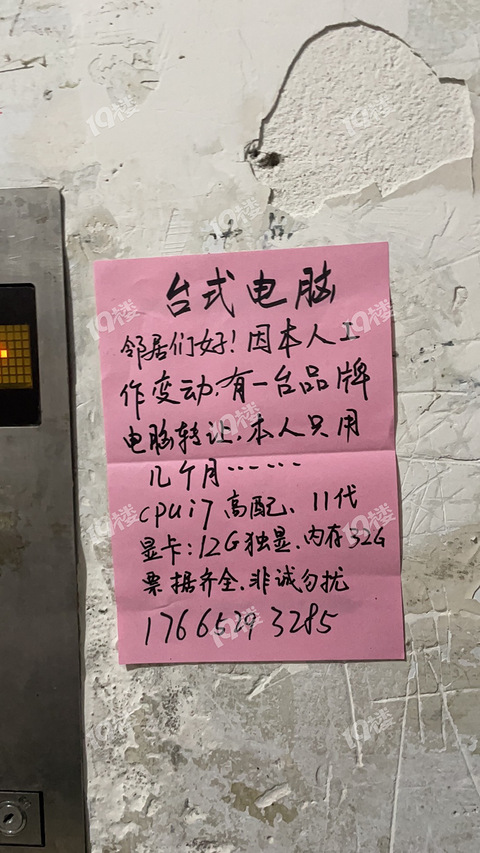 台式电脑
邻居们好！因本人工
作变动.有一台品牌
电脑转让.本人只用
几个月……
cpui7高配、11代
显卡：12G独显.内存32G
票据齐全.非诚勿扰
1766529 3285
19楼